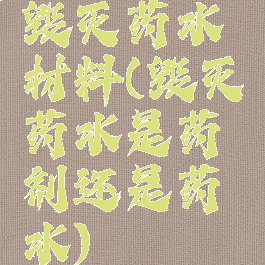 毁灭药水
材料(毁灭
药水是药
剂还是药
水)